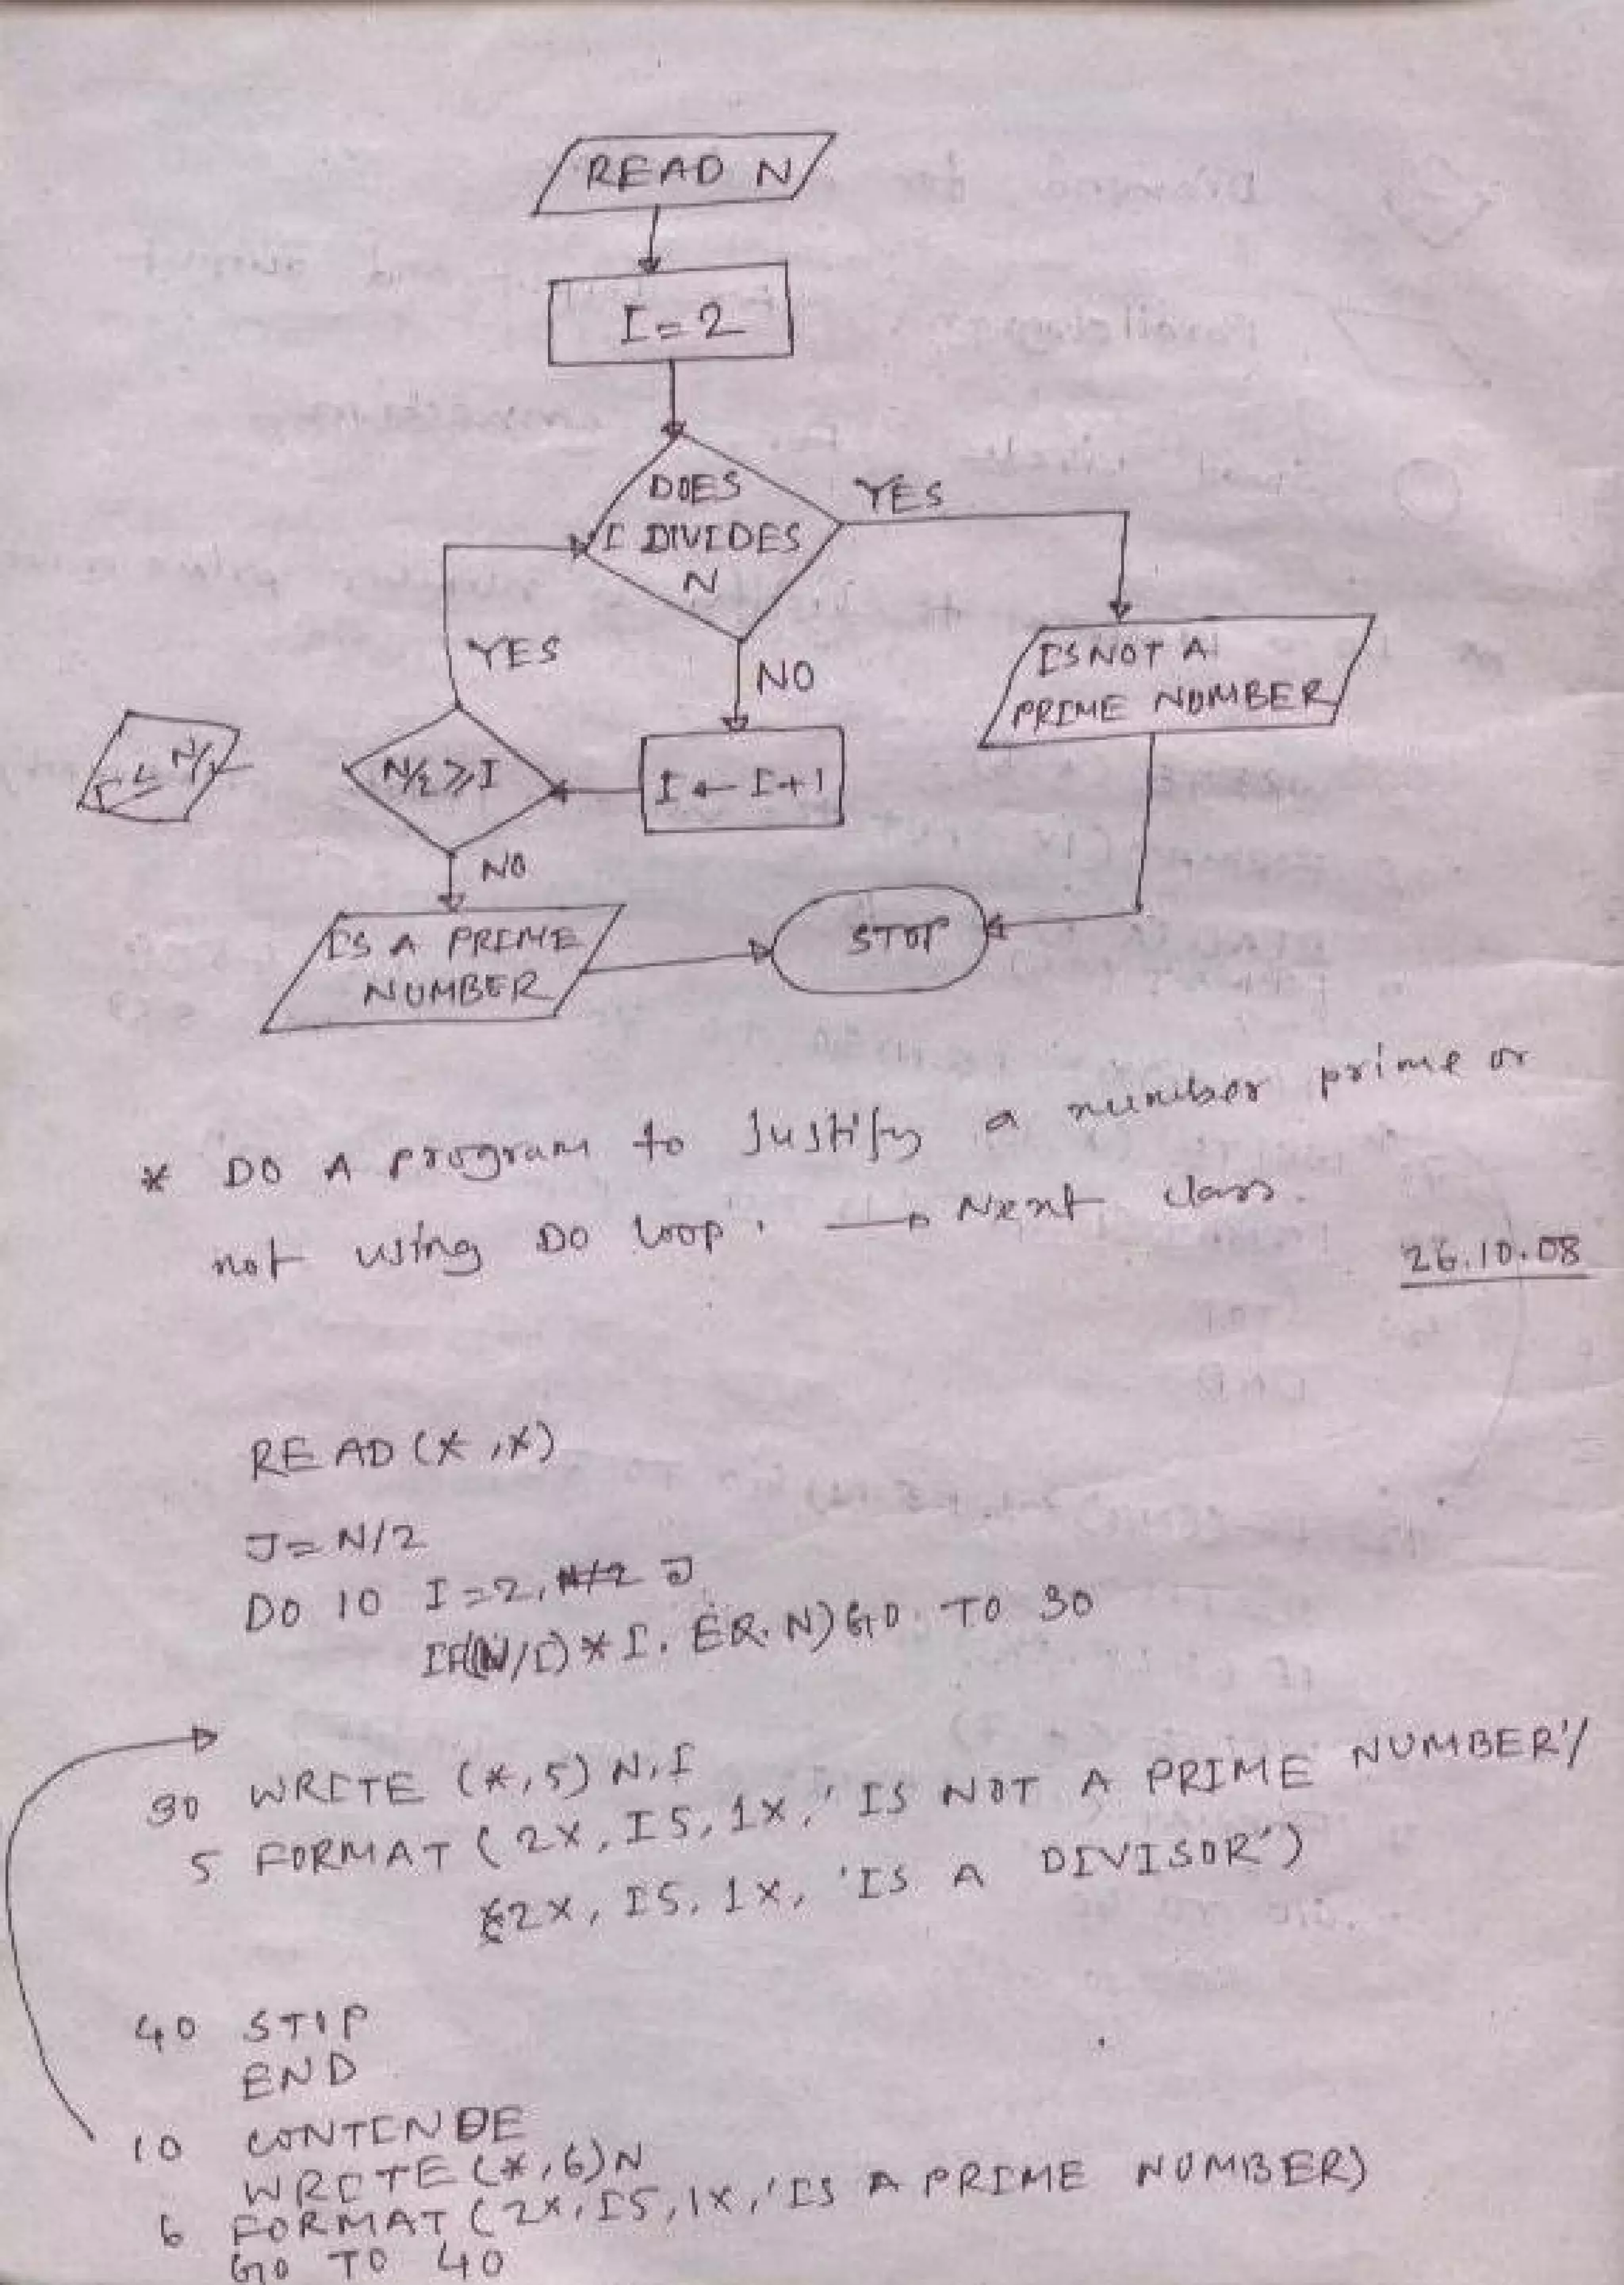 READ N
I=2
DOES
I DIVIDES
N
YES
NO
IS NOT A
PRIME NUMBER
YES
I ≤ N/2
N/2 ≥ I
I ← I+1
NO
IS A PRIME
NUMBER
STOP
* DO A program to Justify a number prime or
not using DO loop. → Next class.
26.10.08
READ (*,*)
J=N/2
DO 10 I=2, N/2 J
IF((N/I)*I.EQ.N) GO TO 30
30 WRITE (*,5) N,I
5 FORMAT (2X, I5, 1X, 'IS NOT A PRIME NUMBER'/
2X, I5, 1X, 'IS A DIVISOR')
40 STOP
END
10 CONTINUE
WRITE (*,6)N
6 FORMAT (2X,I5,1X,'IS A PRIME NUMBER)
GO TO 40